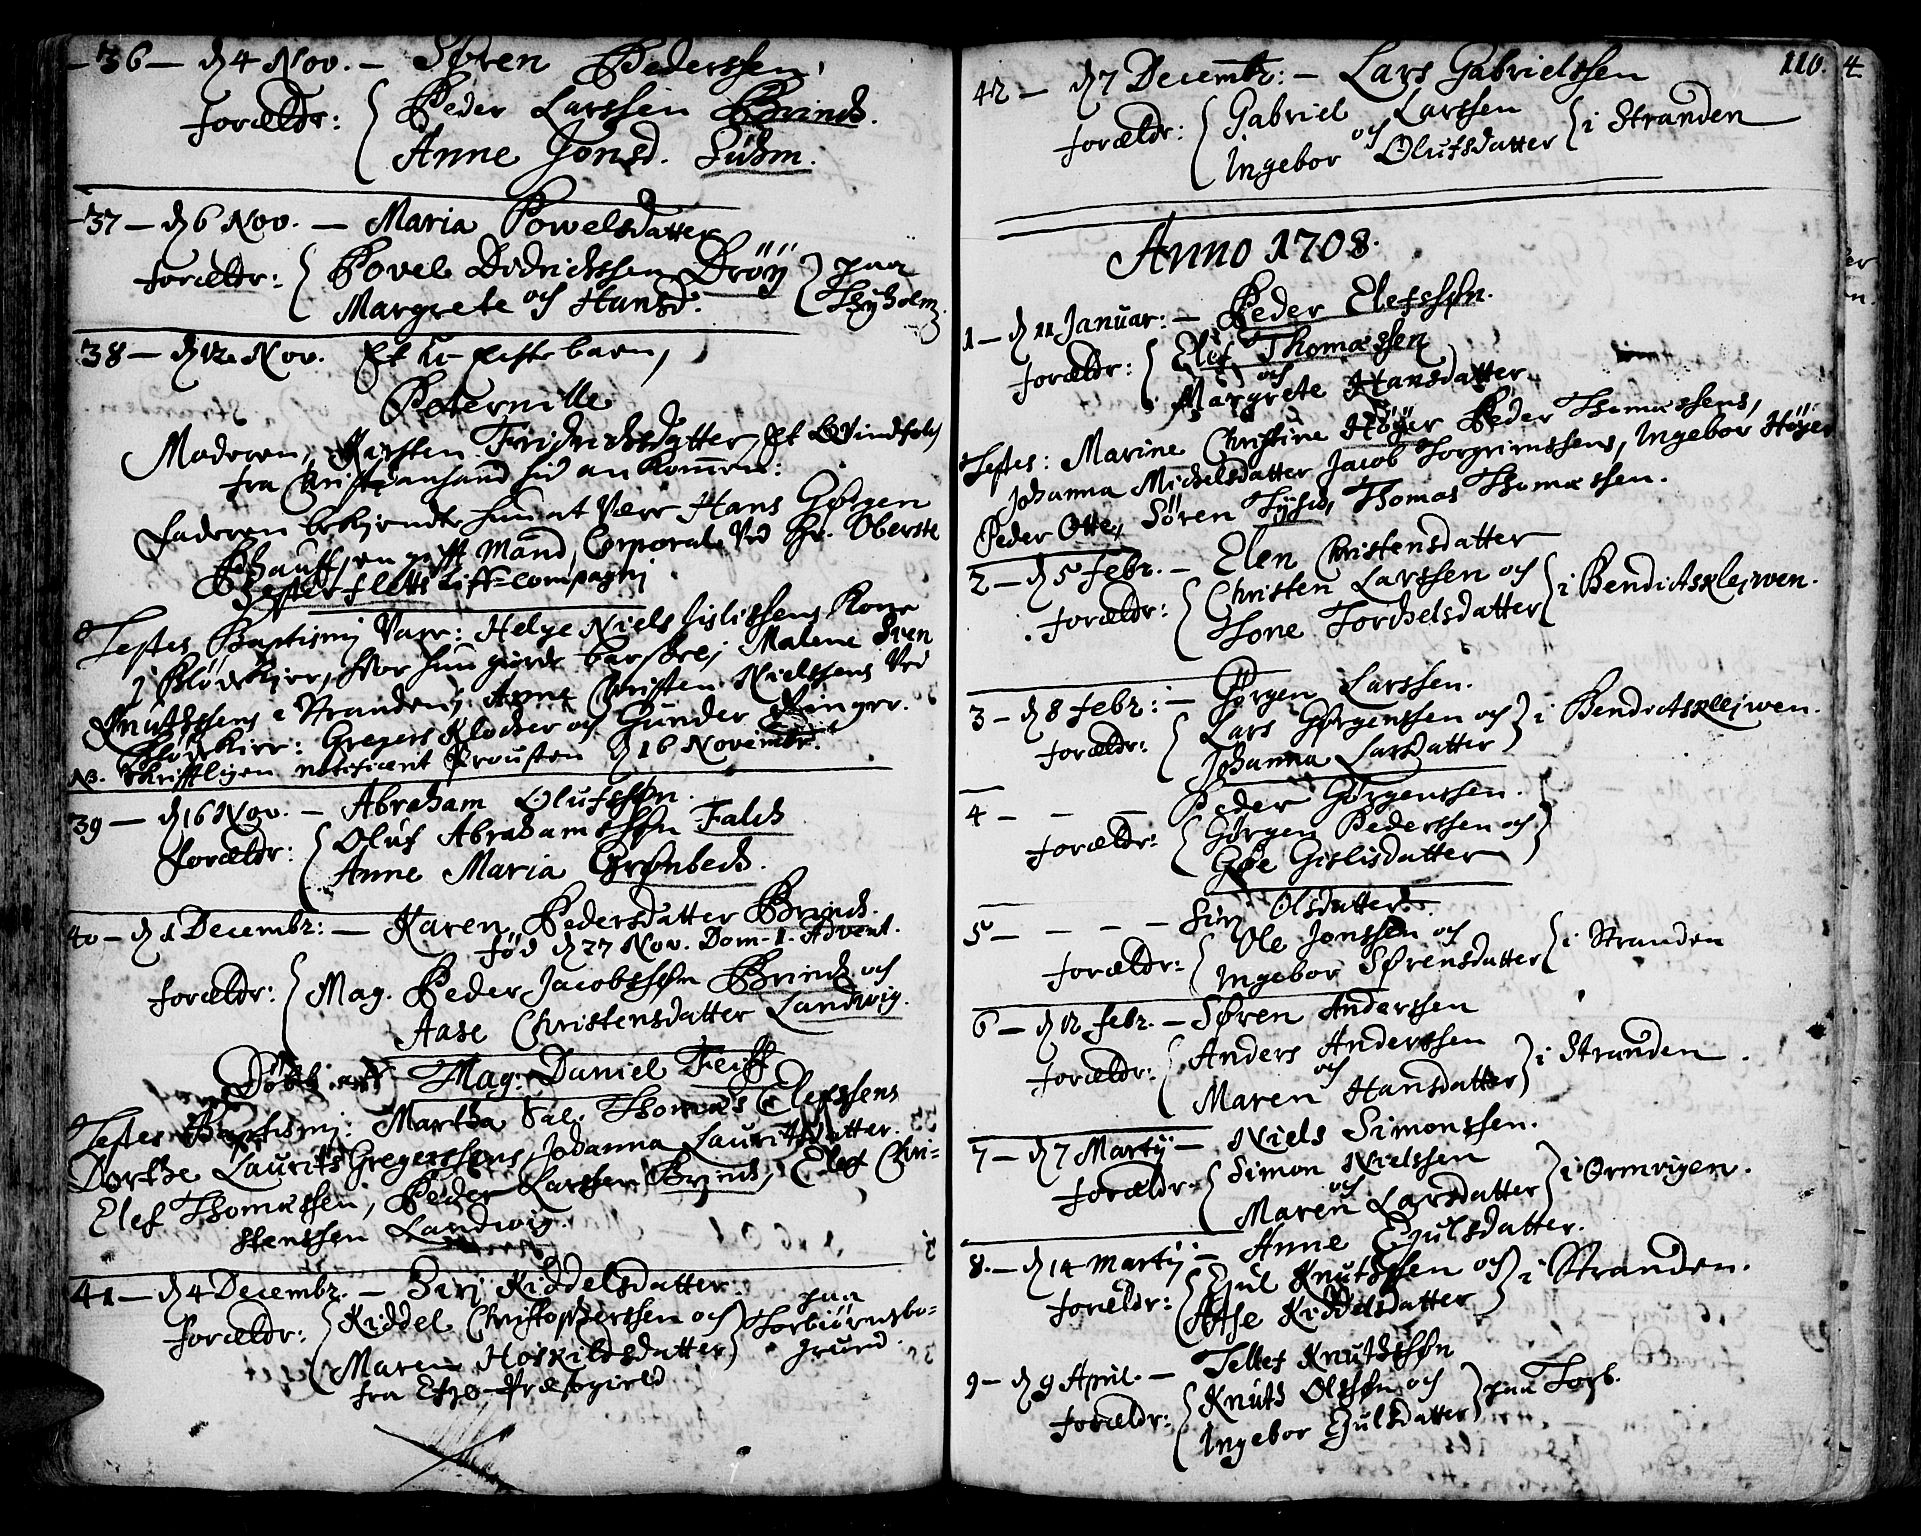 36 — d 4 Nov. — Søren Pederssen
forældr: Peder Larssen Brinch.
Anne Jonsd. Suhm.
37 — d 6 Nov. — Maria Powelsdatter
forældr: Povel Didrichssen Dröÿ paa
Margrete og Hansd. Thÿholm
38 — d 12 Nov. Et u-egte barn,
Peternille
Moderen, Kirsten Fridrichsdatter, Et Qvindfolk
fra Christiansand hid an kommen:
Faderen bekjendte hun at være Hans Gørgen
en gift Mand, Corporal Ved Hr. Oberste
Liff-Compagnj
Testes Baptismj Varr: Helge Niels Gislissens Kone
j Blødekjer, hvor hun giorde barselej Malene Sven
Knuthssens i Stranden, Anne Christen Nielssens Ved
Blødekier: Gregers Klocker og Gunder Ringer.
NB. Skrifftligen notificert Prousten d 16 Novembr.
39 — d 16 Nov. — Abraham Olufssøn.
forældr: Oluf Abrahamssøn Falch
Anne Maria Grønbech.
40 — d 1 Decembr: — Karen Pedersdatter Brinch.
fød d 27 Nov. Dom. 1. Advent.
forældr: Mag. Peder Jacobssøn Brinch og
Aase Christensdatter Landwig.
Døbt aff Mag. Daniel Feiff
Testes Baptismj: Martha Sal. Thomas Elefssens
Dorthe Laurits Gregerssens, Johanna Lauritsdatter.
Elef Thomæssen, Peder Larssen Brinch, Elef Chri-
stenssen Landwig.
41 — d 4 Decembr. — Birj Kiddelsdatter.
forældr: Kiddel Christopherssen og paa
Maren Hoskildsdatter Torbiørnsbo-
fra Etzø-Præstegield grund
110. 4
42 — d 7 Decembr: — Lars Gabrielssen
forældr: Gabriel Larssen
og i Stranden
Ingebor Olufsdatter
Anno 1708.
1 — d 11 Januar: — Peder Elefssøn.
forældr: Elef Thomæssen
og
Margrete Hansdatter
Testes: Marine Christine Höÿer Peder Thomæssens,
Johanna Michelsdatter Jacob Torgrimssens, Ingebor Höÿer
Peder Otte, Søren Tÿsch, Thomas Thomæssen.
2 — d 5 febr. — Elen Christensdatter
forældr: Christen Larssen og i Bendictsklejwen.
Tone Torchelsdatter
3 — d 8 febr: — Gørgen Larssen.
forældr: Lars Gørgenssen og i Bendictsklejwen.
Johanna Larsdatter
4 — — — Peder Gørgenssen.
forældr: Gørgen Pederssen og
Gøe Gislisdatter
5 — — — — Sirj Olsdatter.
forældr: Ole Jonssen og i Stranden
Ingebor Sørensdatter
6 — d 12 febr. — Søren Anderssen
forældr: Anders Anderssen
og i Stranden
Maren Hansdatter
7 — d 7 Martij — Niels Simonssen.
forældr: Simon Nielssen
og i Ormvigen.
Maren Larsdatter
8. — d 14 Martij — Anne Ejulsdatter.
forældr: Ejul Knutssen og i Stranden.
Aase Kiddelsdatter
9 — d 9 April. — Tellef Knuthssøn
forældr: Knuth Olssøn og paa Torb.
Ingebor Ejulsdatter